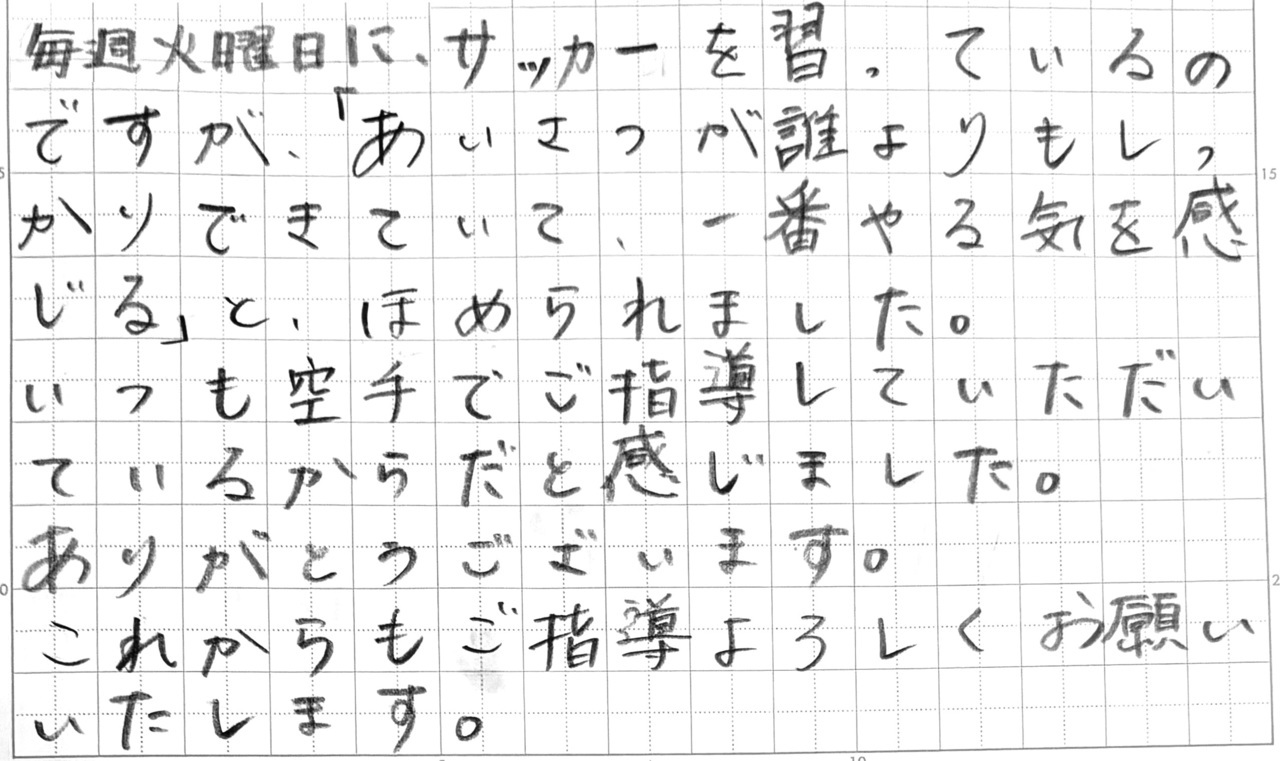 毎週火曜日に、サッカーを習っているの
ですが、「あいさつが誰よりもしっ
かりできていて、一番やる気を感
じる」と、ほめられました。
いつも空手でご指導していただい
ているからだと感じました。
ありがとうございます。
これからもご指導よろしくお願い
いたします。